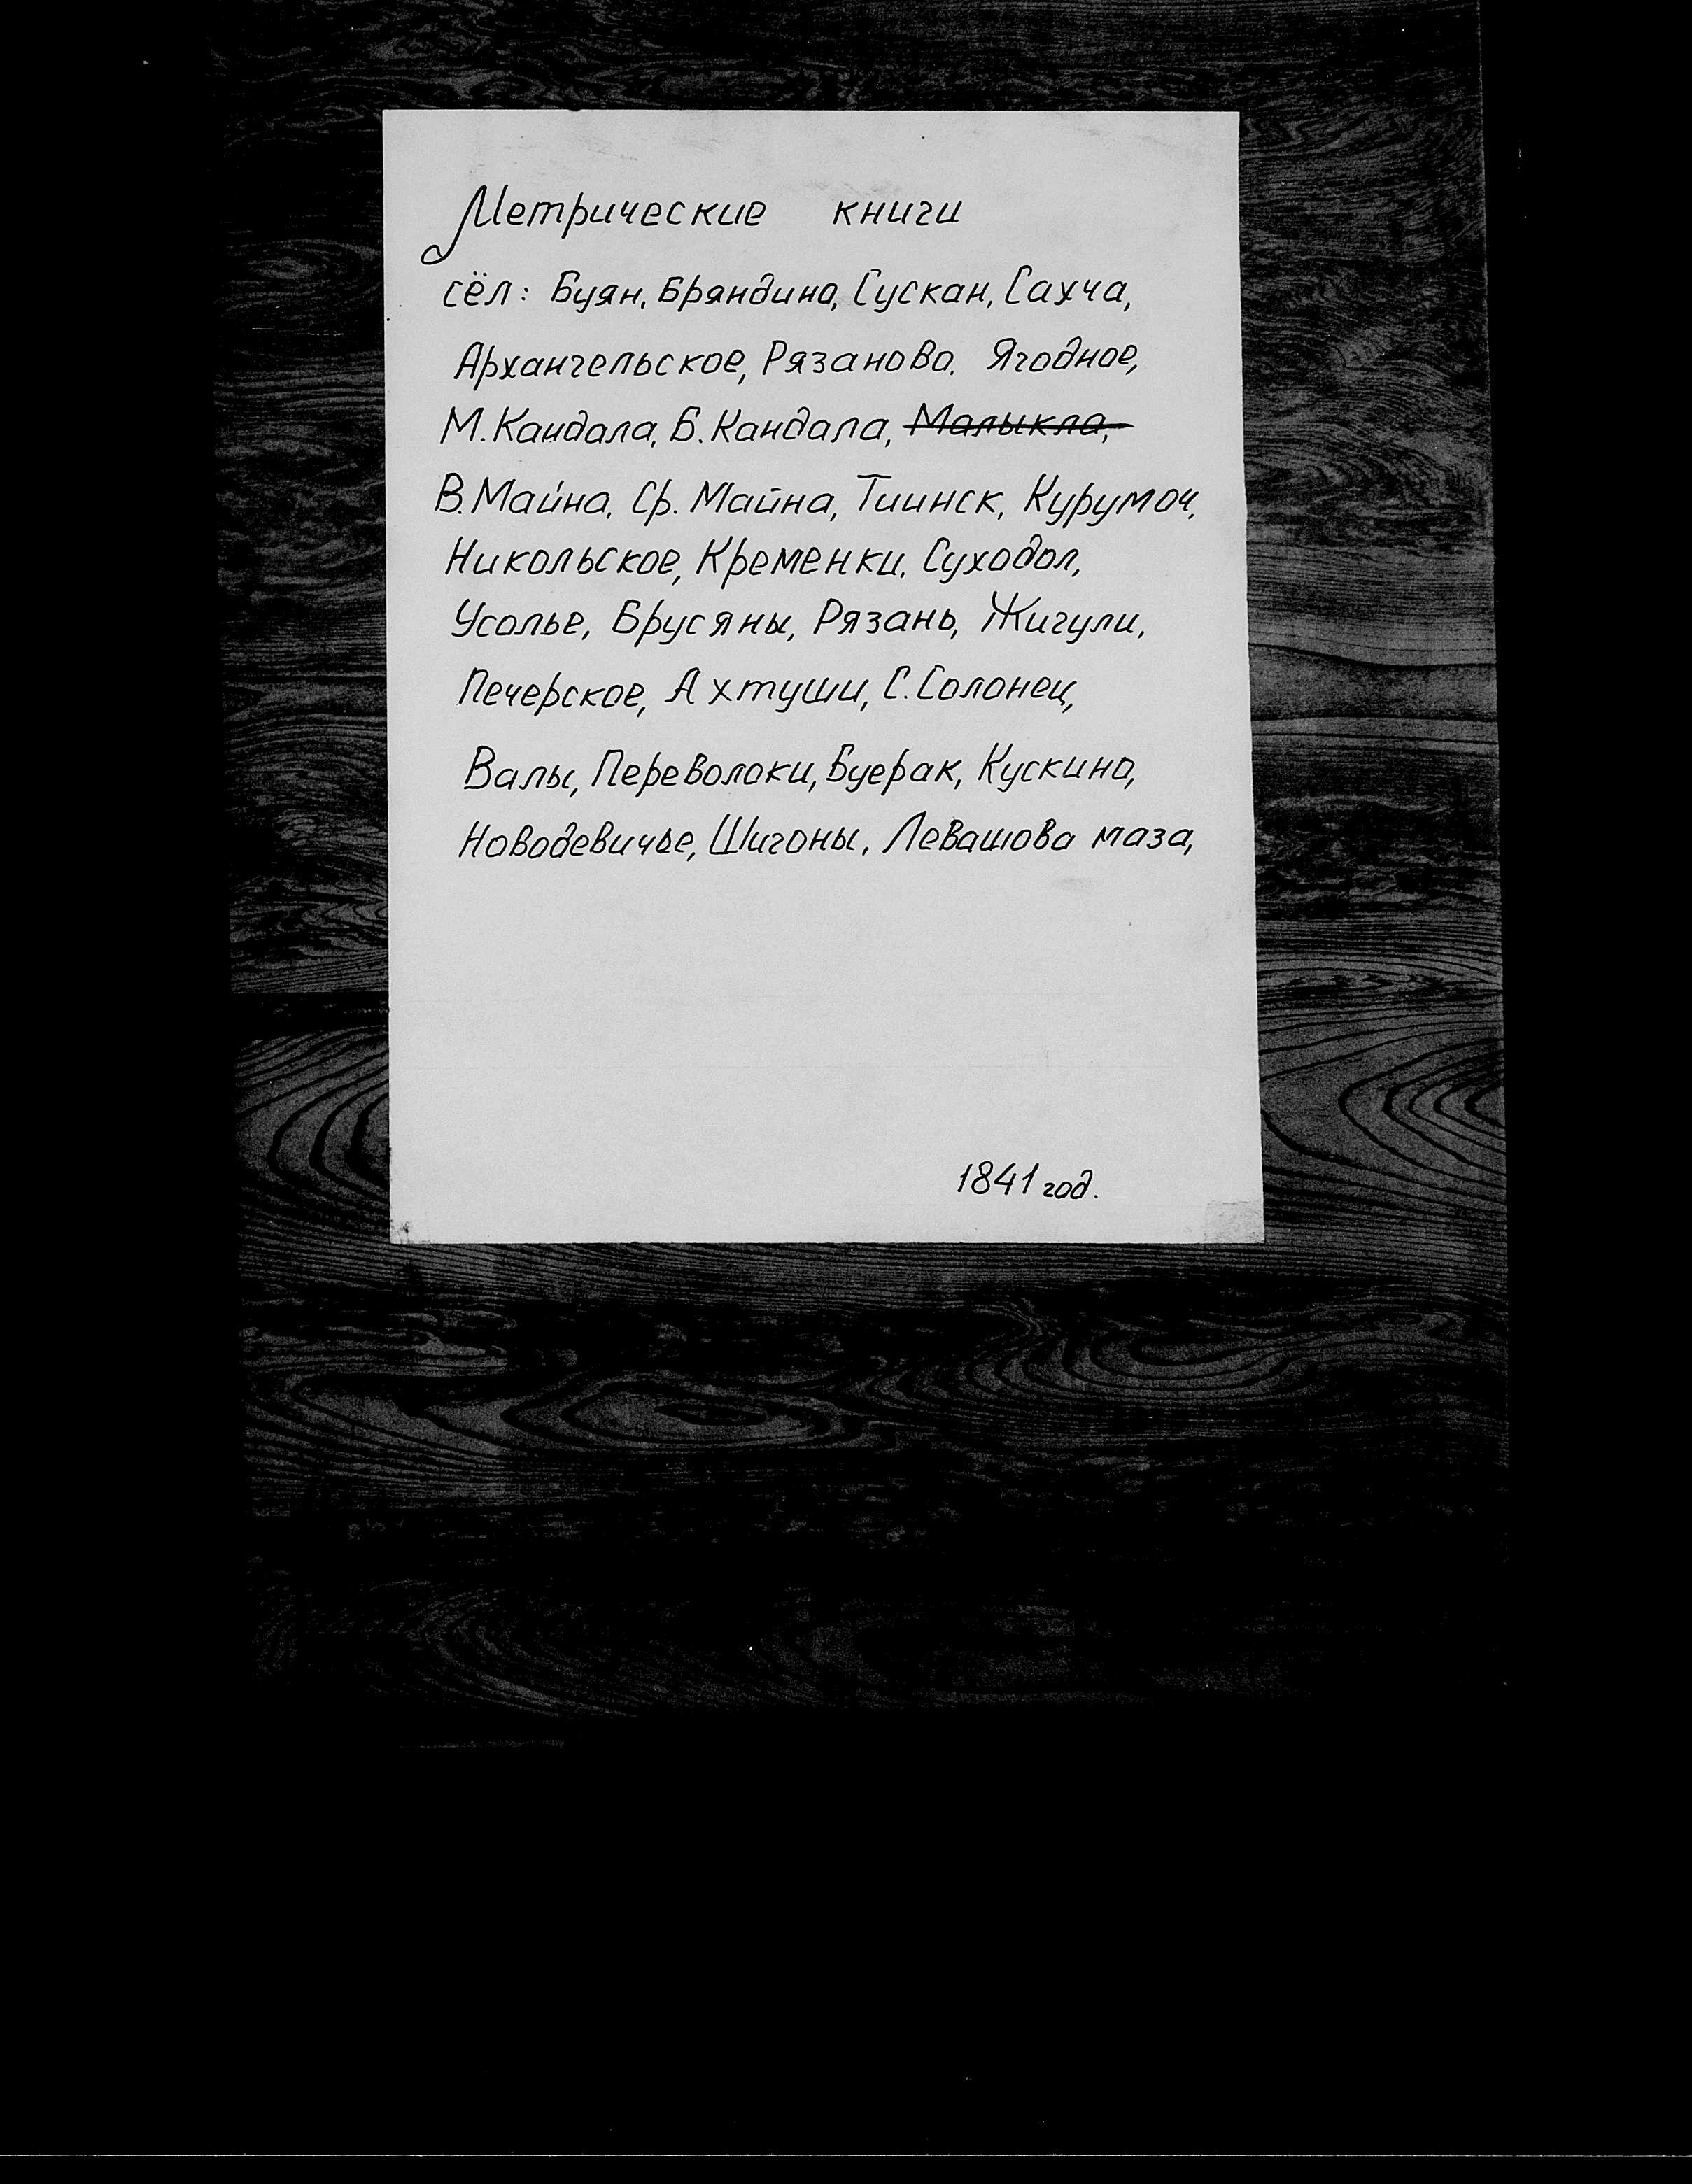 Метрические книги
сёл: Буян, Бряндино, Сускан, Сахча,
Архангельское, Рязаново, Ягодное,
М. Кандала, Б. Кандала, Малыкла,
В. Майна, Ср. Майна, Тиинск, Курумоч,
Никольское, Кременки, Суходол,
Усолье, Брусяны, Рязань, Жигули,
Печерское, Ахтуши, С. Солонец,
Валы, Переволоки, Буерак, Кускино,
Новодевичье, Шигоны, Левашова маза,
1841 год.